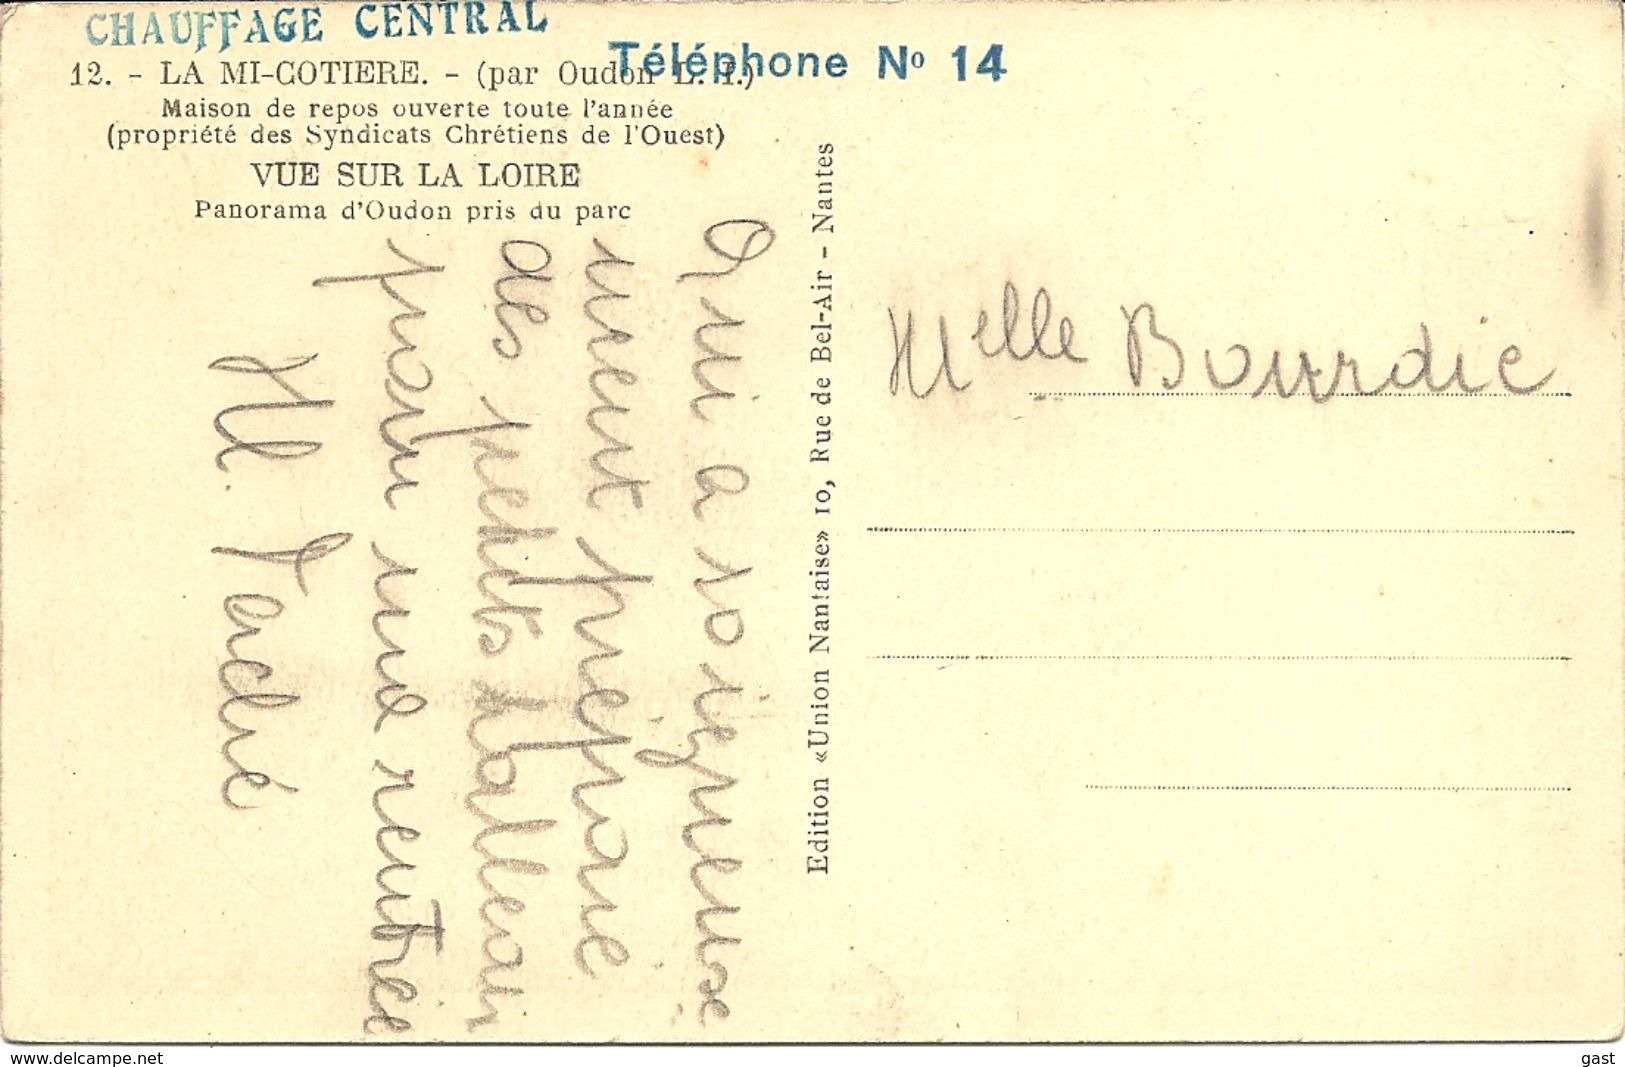 CHAUFFAGE CENTRAL
Téléphone No 14
12. - LA MI-COTIERE. - (par Oudon L.-I.)
Maison de repos ouverte toute l'année
(propriété des Syndicats Chrétiens de l'Ouest)
VUE SUR LA LOIRE
Panorama d'Oudon pris du parc
Qui a soigneuse
ment préparé
des petits
pour ma rentrée
M.
Edition «Union Nantaise» 10, Rue de Bel-Air - Nantes
Melle Bourdic
www.delcampe.net
gast